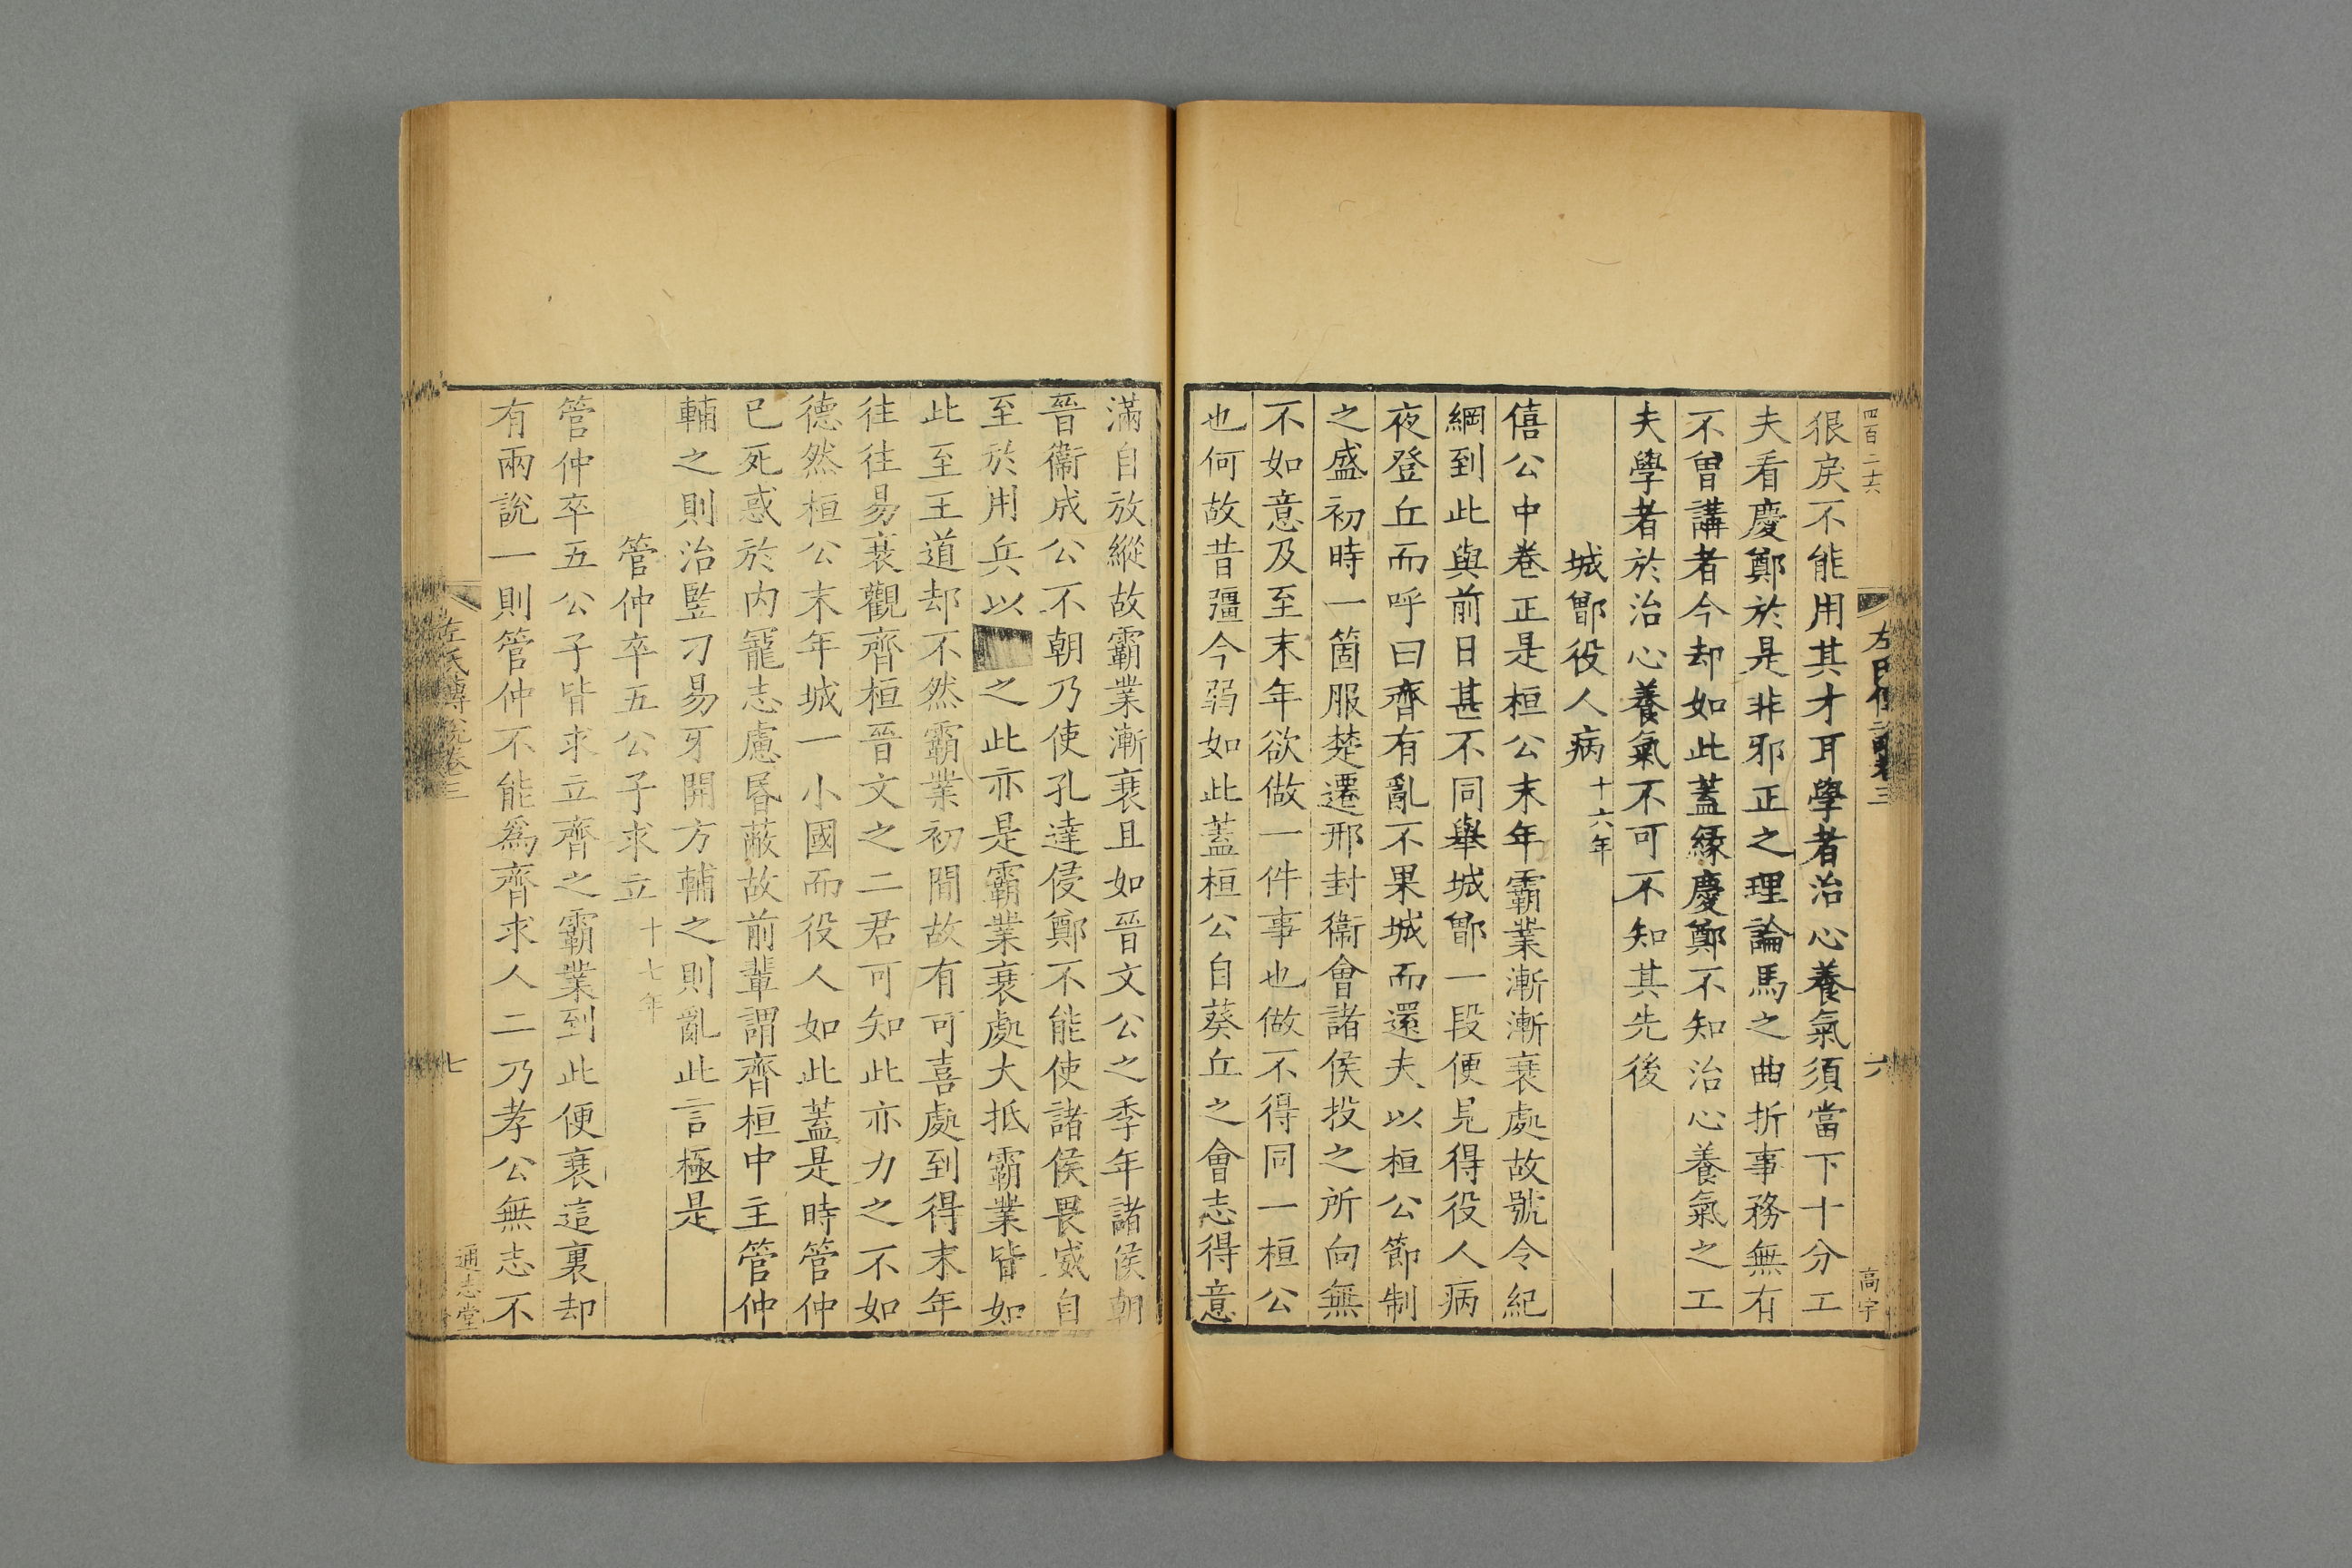 四百二十六
六
高宇
很戾不能用其才耳學者治心養氣須當下十分工
夫看慶鄭於是非邪正之理論馬之曲折事務無有
不曾講者今却如此蓋緣慶鄭不知治心養氣之工
夫學者於治心養氣不可不知其先後
城鄫役人病十六年
僖公中卷正是桓公末年霸業漸漸衰處故號令紀
綱到此與前日甚不同舉城鄫一段便見得役人病
夜登丘而呼曰齊有亂不果城而還夫以桓公節制
之盛初時一箇服楚遷邢封衞會諸侯投之所向無
不如意及至末年欲做一件事也做不得同一桓公
也何故昔彊今弱如此蓋桓公自葵丘之會志得意
滿自放縱故霸業漸衰且如晉文公之季年諸侯朝
晉衞成公不朝乃使孔達侵鄭不能使諸侯畏威自
至於用兵以之此亦是霸業衰處大抵霸業皆如
此至王道却不然霸業初間故有可喜處到得末年
往往易衰觀齊桓晉文之二君可知此亦力之不如
德然桓公末年城一小國而役人如此蓋是時管仲
已死惑於内寵志慮昬蔽故前輩謂齊桓中主管仲
輔之則治豎刁易牙開方輔之則亂此言極是
管仲卒五公子求立十七年
管仲卒五公子皆求立齊之霸業到此便衰這裏却
有兩說一則管仲不能爲齊求人二乃孝公無志不
左氏傳說卷三
七
通志堂